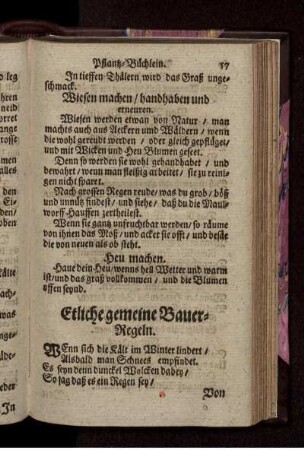 Pflantz-Büchlein. 57
In tieffen Thälern wird das Graß unge-
schmack.
Wiesen machen / handhaben und
erneuren.
Wiesen werden etwan von Natur / man
machts auch aus Aeckern und Wäldern / wenn
die wohl gereuht werden / oder gleich gepflüget /
und mit Wicken und Heu Blumen geseet.
Denn so werden sie wohl gehandhabet / und
bewahrt / wenn man fleißig arbeitet / sie zu reini-
gen nicht sparet.
Nach grossen Regen reude / was du grob / böß
und unnütz findest / und siehe / daß du die Maul-
worff-Hauffen zertheilest.
Wenn sie gantz unfruchtbar werden / so räume
von ihnen das Moß / und acker sie offt / und besäe
die von neuen als ob steht.
Heu machen.
Haue dein Heu / wenns hell Wetter und warm
ist / und das graß vollkommen / und die Blumen
offen seynd.
Etliche gemeine Bauer-
Regeln.
WEnn sich die Kält im Winter lindert /
Alsbald man Schnees empfindet.
Es seyn denn dunckel Wolcken dabey /
So sag daß es ein Regen sey /
Von